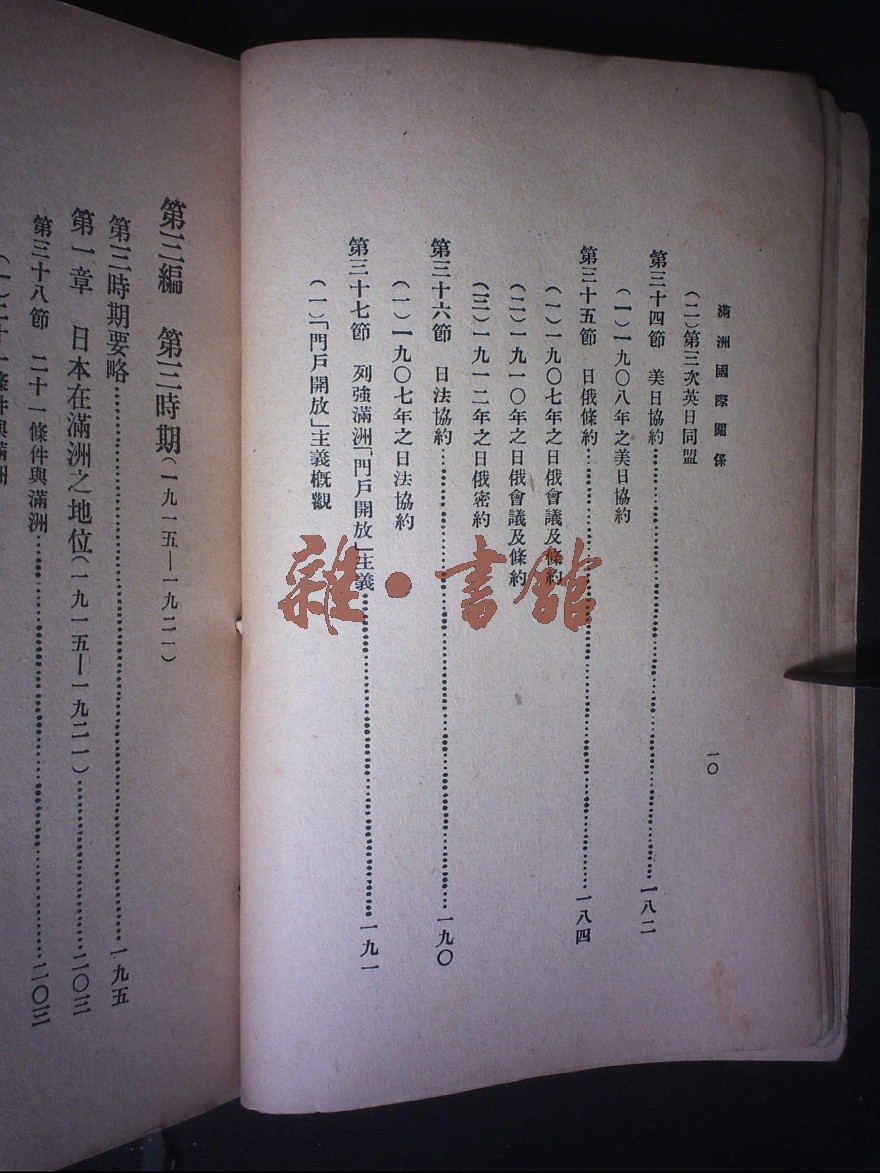 滿洲國際關係
一〇
(二)第三次英日同盟
第三十四節　美日協約……一八二
(一)一九〇八年之美日協約
第三十五節　日俄條約……一八四
(一)一九〇七年之日俄會議及條約
(二)一九一〇年之日俄會議及條約
(三)一九一二年之日俄密約
第三十六節　日法協約……一九〇
(一)一九〇七年之日法協約
第三十七節　列強滿洲「門戶開放」主義……一九一
(一)「門戶開放」主義概觀
第三編　第三時期(一九一五—一九二一)
第三時期要略……一九五
第一章　日本在滿洲之地位(一九一五—一九二一)……二〇三
第三十八節　二十一條件與滿洲……二〇三
(一)二十一條件與滿洲
雜·書館